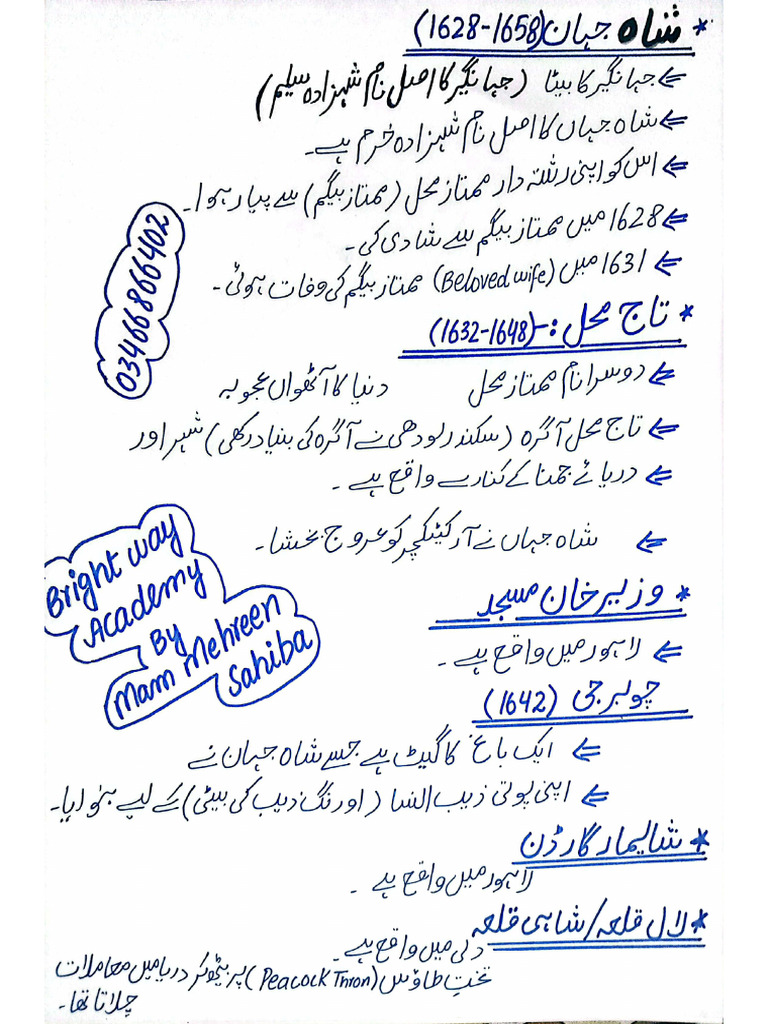 * شاہ جہان (1628-1658)
⇐ جہانگیر کا بیٹا (جہانگیر کا اصل نام شہزادہ سلیم)
⇐ شاہ جہاں کا اصل نام شہزادہ خرم ہے۔
⇐ اس کو اپنی رشتہ دار ممتاز محل (ممتاز بیگم) سے پیار ہوا۔
⇐ 1628 میں ممتاز بیگم سے شادی کی۔
⇐ 1631 میں (Beloved wife) ممتاز بیگم کی وفات ہوئی۔
03466866402
* تاج محل :- (1632-1648)
⇐ دوسرا نام ممتاز محل دنیا کا آٹھواں عجوبہ
⇐ تاج محل آگرہ (سکندر لودھی نے آگرہ کی بنیاد رکھی) شہر اور
⇐ دریائے جمنا کے کنارے واقع ہے۔
⇐ شاہ جہاں نے آرکٹیکچر کو عروج بخشا۔
Bright way
Academy
By
Mam Mehreen
Sahiba
* وزیر خان مسجد
⇐ لاہور میں واقع ہے۔
چوبرجی (1642)
⇐ ایک باغ کا گیٹ ہے جسے شاہ جہاں نے
⇐ اپنی پوتی زیب النسا (اورنگ زیب کی بیٹی) کے لیے بنوایا۔
* شالیمار گارڈن
لاہور میں واقع ہے۔
* لال قلعہ/شاہی قلعہ
دلی میں واقع ہے۔
تخت طاؤس (Peacock Thron) پر بیٹھ کر دریا میں معاملات
چلاتا تھا۔